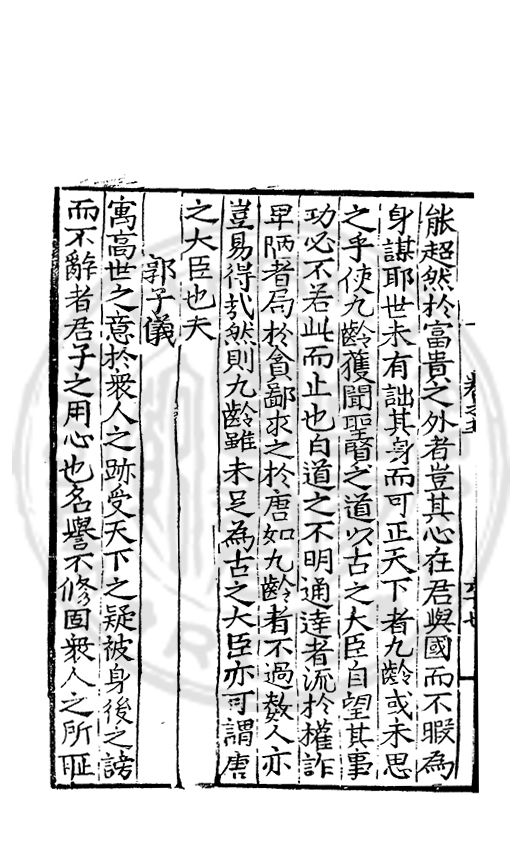 能超然於富貴之外者豈其心在君與國而不暇為
身謀耶世未有詘其身而可正天下者九齡或未思
之乎使九齡獲聞聖賢之道以古之大臣自望其事
功必不若此而止也自道之不明通達者流於權詐
卑陋者局於貪鄙求之於唐如九齡者不過數人亦
豈易得哉然則九齡雖未足為古之大臣亦可謂唐
之大臣也夫
郭子儀
寓高世之意於衆人之跡受天下之疑被身後之謗
而不辭者君子之用心也名譽不修固衆人之所恥